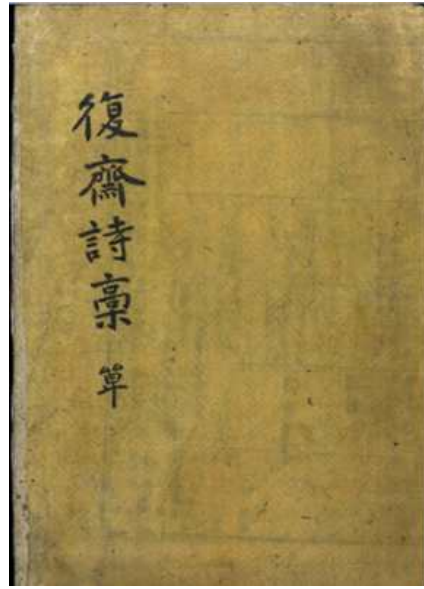 復齋詩稾 單